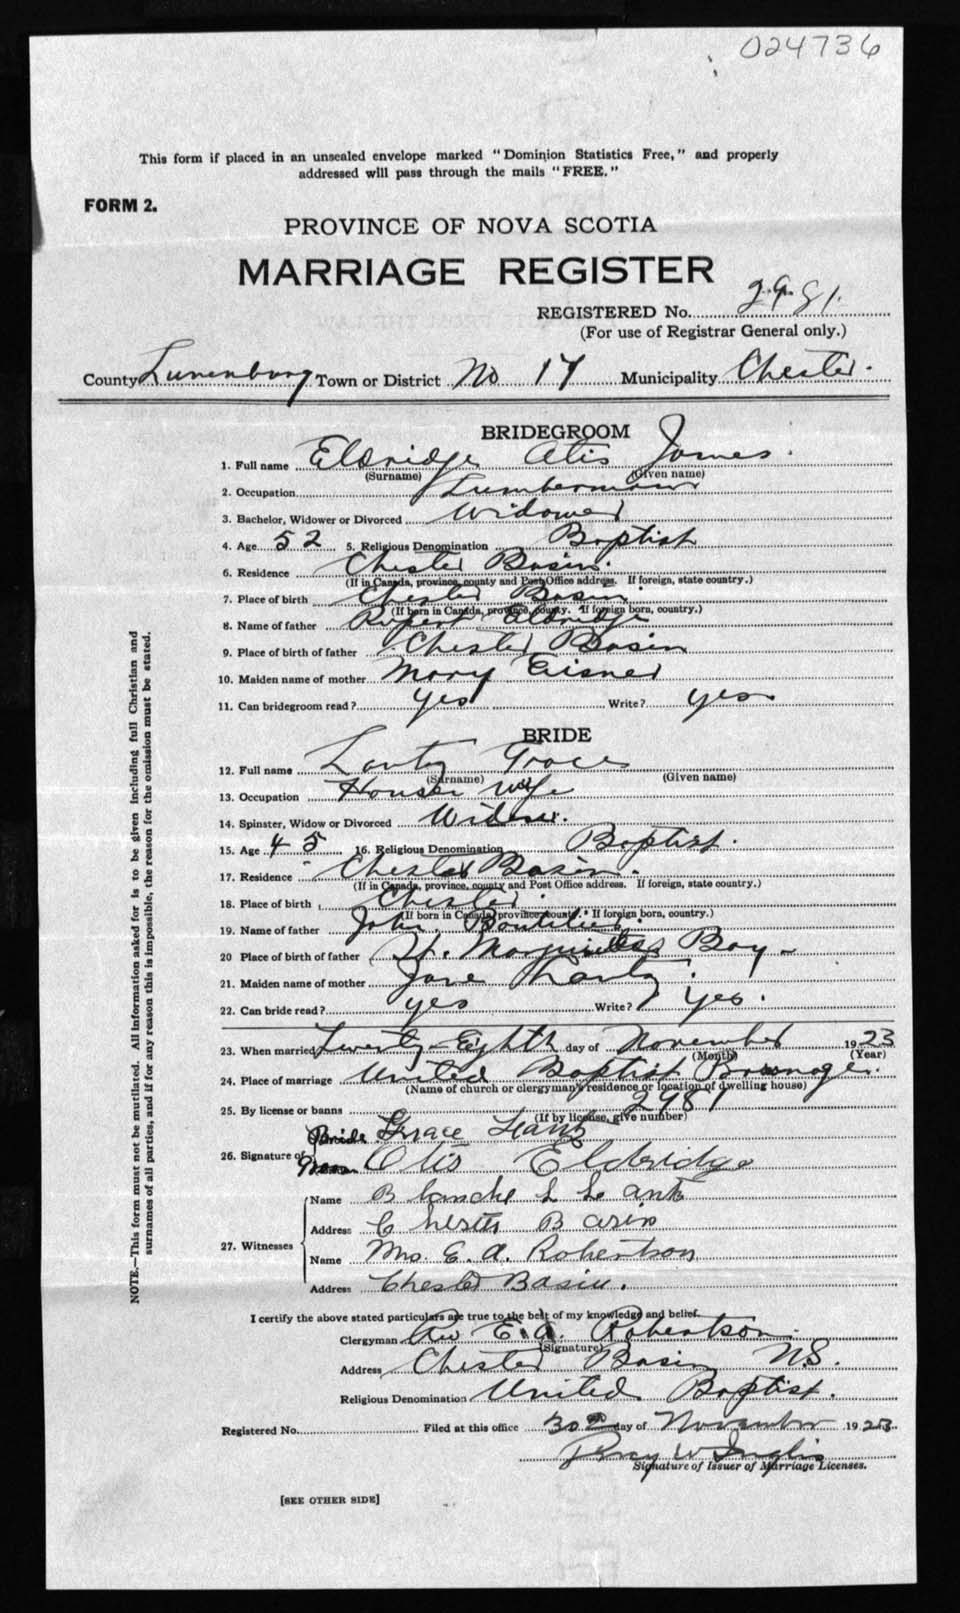 024736
This form if placed in an unsealed envelope marked "Dominion Statistics Free," and properly
addressed will pass through the mails "FREE."
FORM 2.
PROVINCE OF NOVA SCOTIA
MARRIAGE REGISTER
REGISTERED No. 2981.
(For use of Registrar General only.)
County Lunenburg Town or District No 17 Municipality Chester.
BRIDEGROOM
1. Full name Eldridge Otis James.
(Surname) (Given name)
2. Occupation Lumberman
3. Bachelor, Widower or Divorced Widower
4. Age 52 5. Religious Denomination Baptist
6. Residence Chester Basin.
(If in Canada, province, county and Post Office address. If foreign, state country.)
7. Place of birth Chester Basin.
(If born in Canada, province, county. If foreign born, country.)
8. Name of father Rupert Eldridge
9. Place of birth of father Chester Basin
10. Maiden name of mother Mary Eisner
11. Can bridegroom read? yes Write? yes
BRIDE
12. Full name Lantz Grace
(Surname) (Given name)
13. Occupation House wife
14. Spinster, Widow or Divorced Widow.
15. Age 45 16. Religious Denomination Baptist.
17. Residence Chester Basin.
(If in Canada, province, county and Post Office address. If foreign, state country.)
18. Place of birth Chester.
(If born in Canada, province, county. If foreign born, country.)
19. Name of father John Boutilier
20 Place of birth of father St. Margarets Bay
21. Maiden name of mother Jane
22. Can bride read? yes Write? Yes.
23. When married Twenty-Eighth day of November 1923
(Month) (Year)
24. Place of marriage United Baptist Parsonage.
(Name of church or clergyman's residence or location of dwelling house)
25. By license or banns 2981
(If by license, give number)
Bride Grace Lantz
26. Signature of Groom Otis Eldridge
Name Blanche L Lantz
Address Chester Basin
27. Witnesses
Name Mrs. E. A. Robertson
Address Chester Basin.
I certify the above stated particulars are true to the best of my knowledge and belief.
Clergyman Rev E. A. Robertson.
(Signature)
Address Chester Basin N.S.
Religious Denomination United Baptist.
Registered No. Filed at this office 30 day of November 1923
Percy W Inglis
Signature of Issuer of Marriage Licenses.
[SEE OTHER SIDE]
NOTE.—This form must not be mutilated. All information asked for is to be given including full Christian and
surnames of all parties, and if for any reason this is impossible, the reason for the omission must be stated.